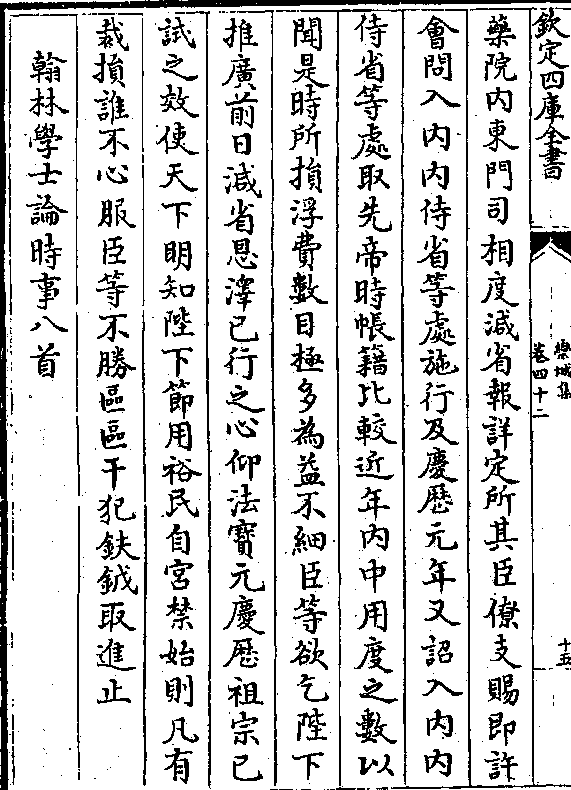 欽定四庫全書
欒城集
卷四十二
十五
藥院内東門司相度減省報詳定所其臣僚支賜即許
會問入内内侍省等處施行及慶厯元年又詔入内内
侍省等處取先帝時帳籍比較近年内中用度之數以
聞是時所損浮費數目極多為益不細臣等欲乞陛下
推廣前日減省恩澤已行之心仰法寳元慶厯祖宗已
試之效使天下明知陛下節用裕民自宫禁始則凡有
裁損誰不心服臣等不勝區區干犯鈇鉞取進止
翰林學士論時事八首